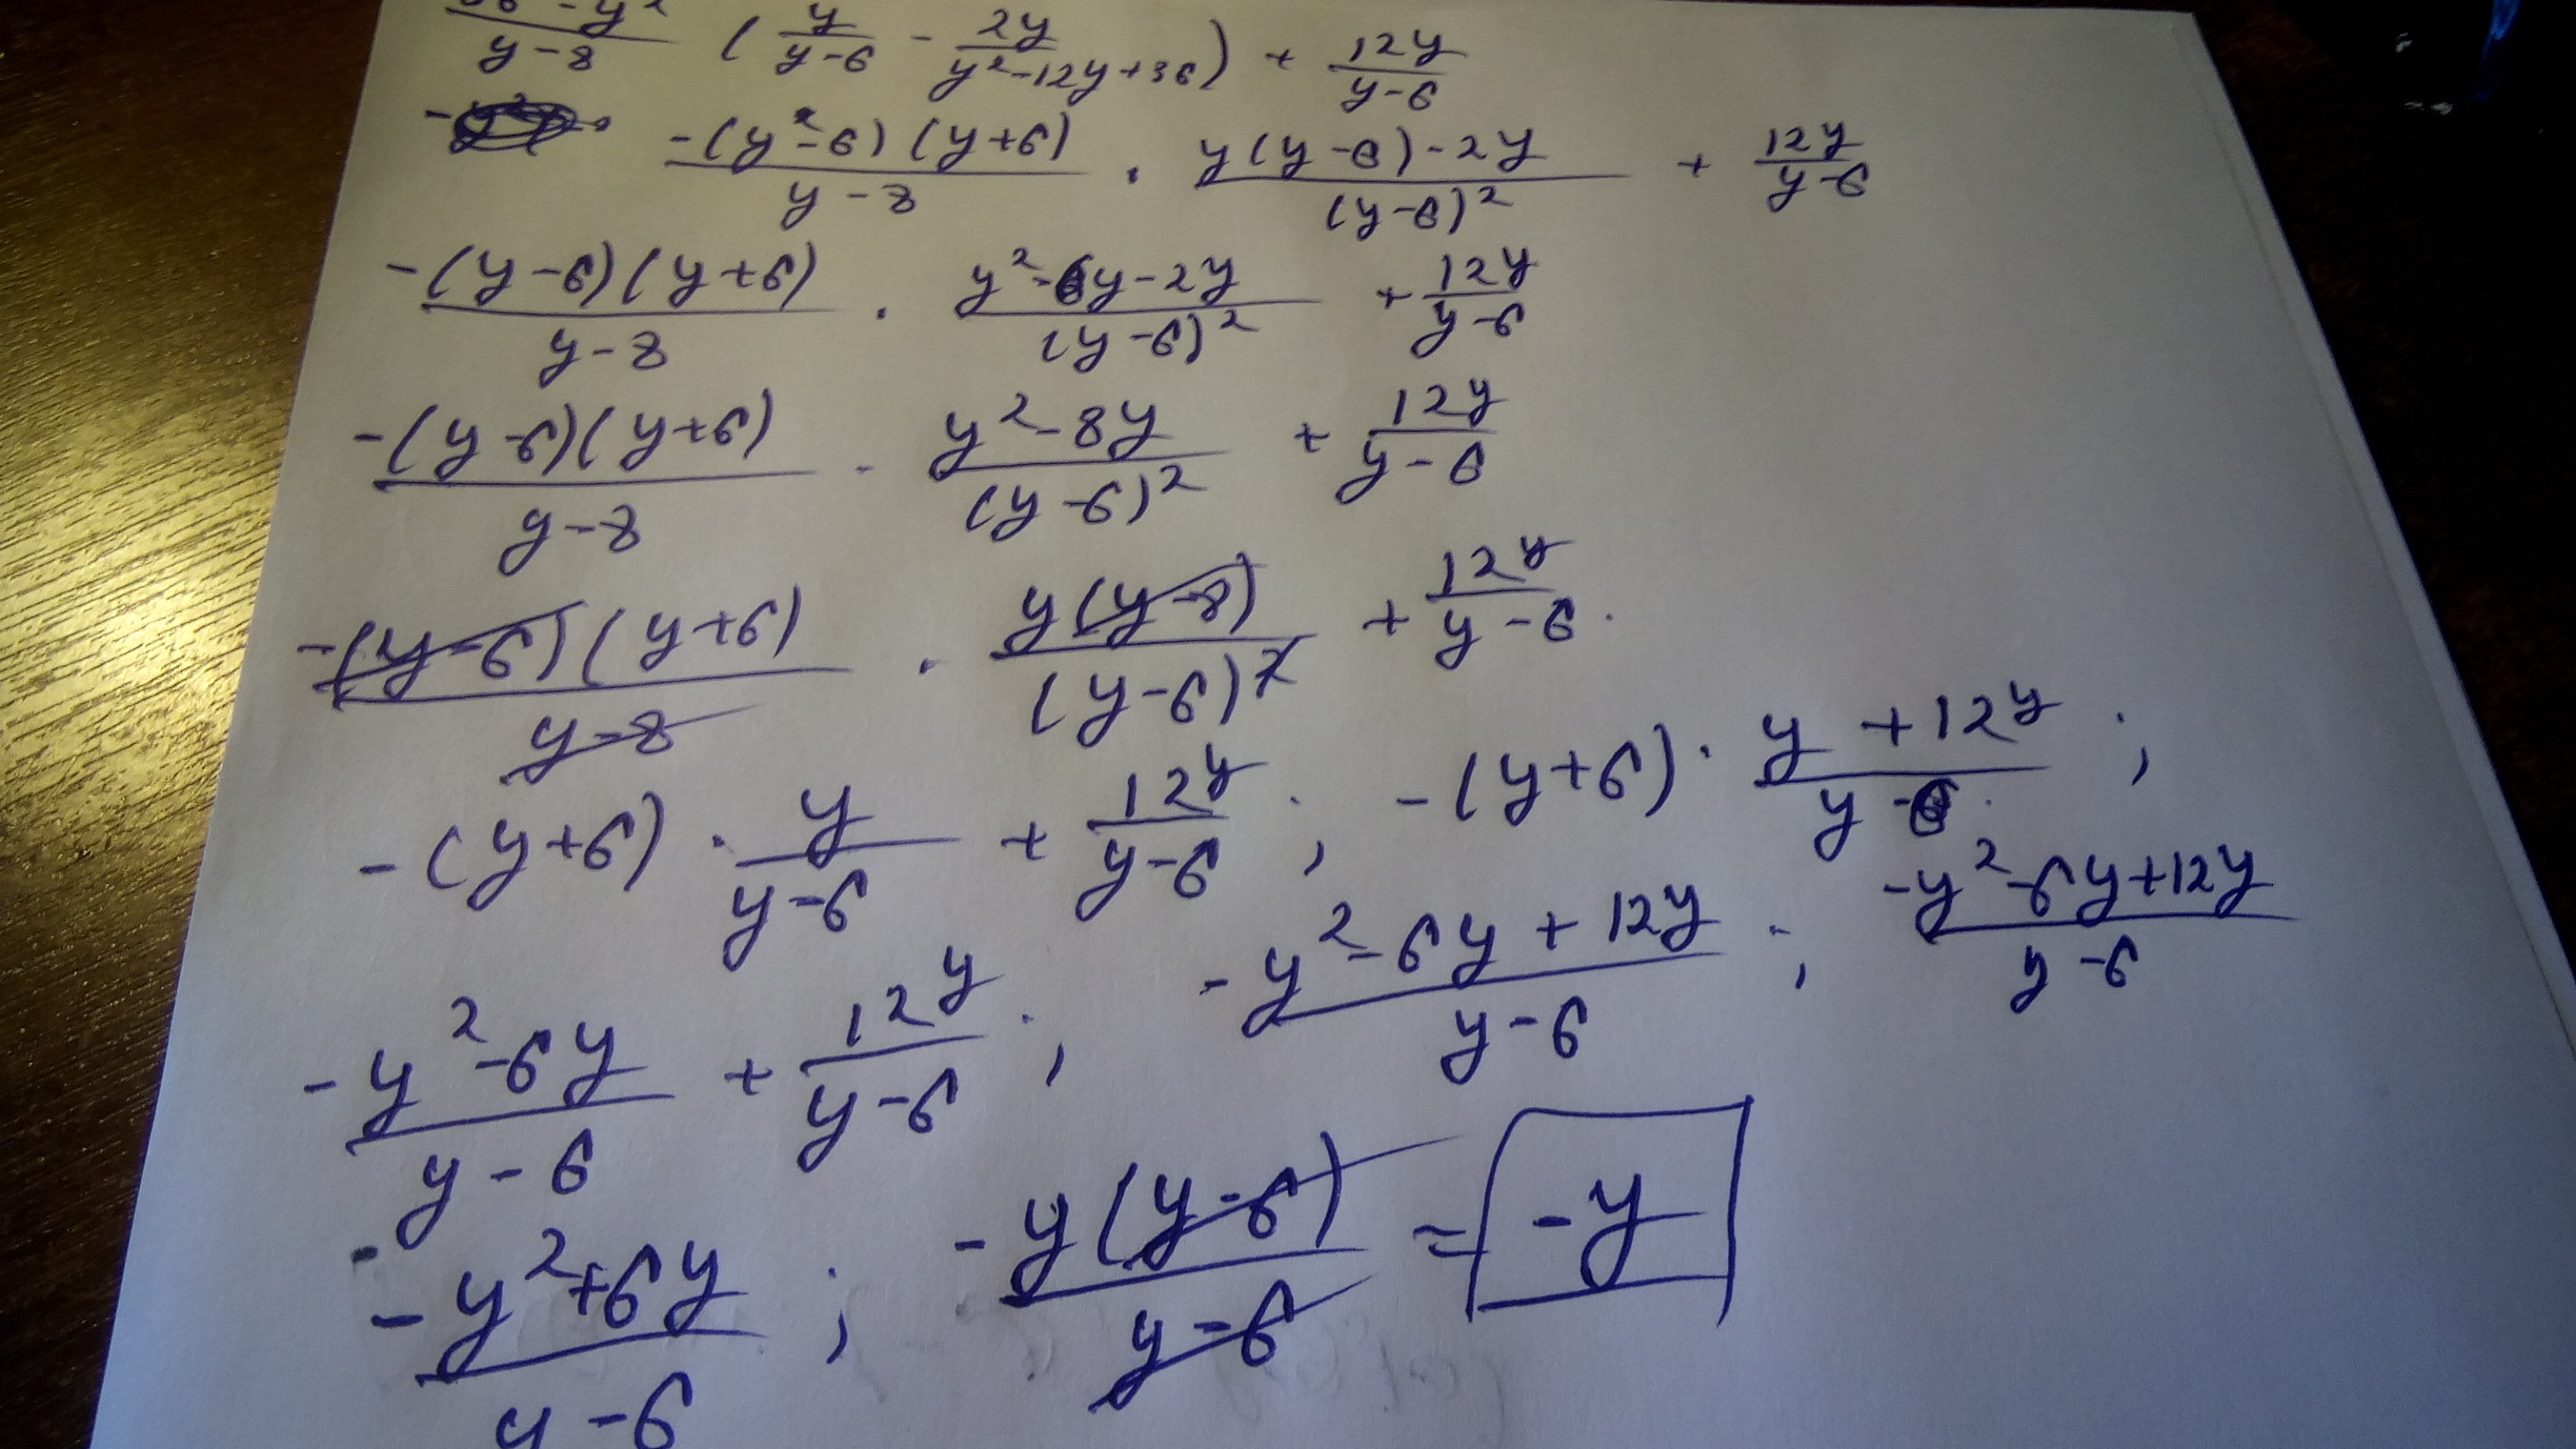 36 - y² / y-8 ( y / y-6 - 2y / y²-12y+36 ) + 12y / y-6
-(y²-6)(y+6) / y-8 · y(y-6)-2y / (y-6)² + 12y / y-6
-(y-6)(y+6) / y-8 · y²-6y-2y / (y-6)² + 12y / y-6
-(y-6)(y+6) / y-8 · y²-8y / (y-6)² + 12y / y-6
-(y-6)(y+6) / y-8 · y(y-8) / (y-6)² + 12y / y-6 .
-(y+6) · y / y-6 + 12y / y-6 ; -(y+6) · y+12y / y-6 ;
-y²-6y / y-6 + 12y / y-6 ; -y²-6y+12y / y-6 ; -y²-6y+12y / y-6
-y²+6y / y-6 ; -y(y-6) / y-6 = -y